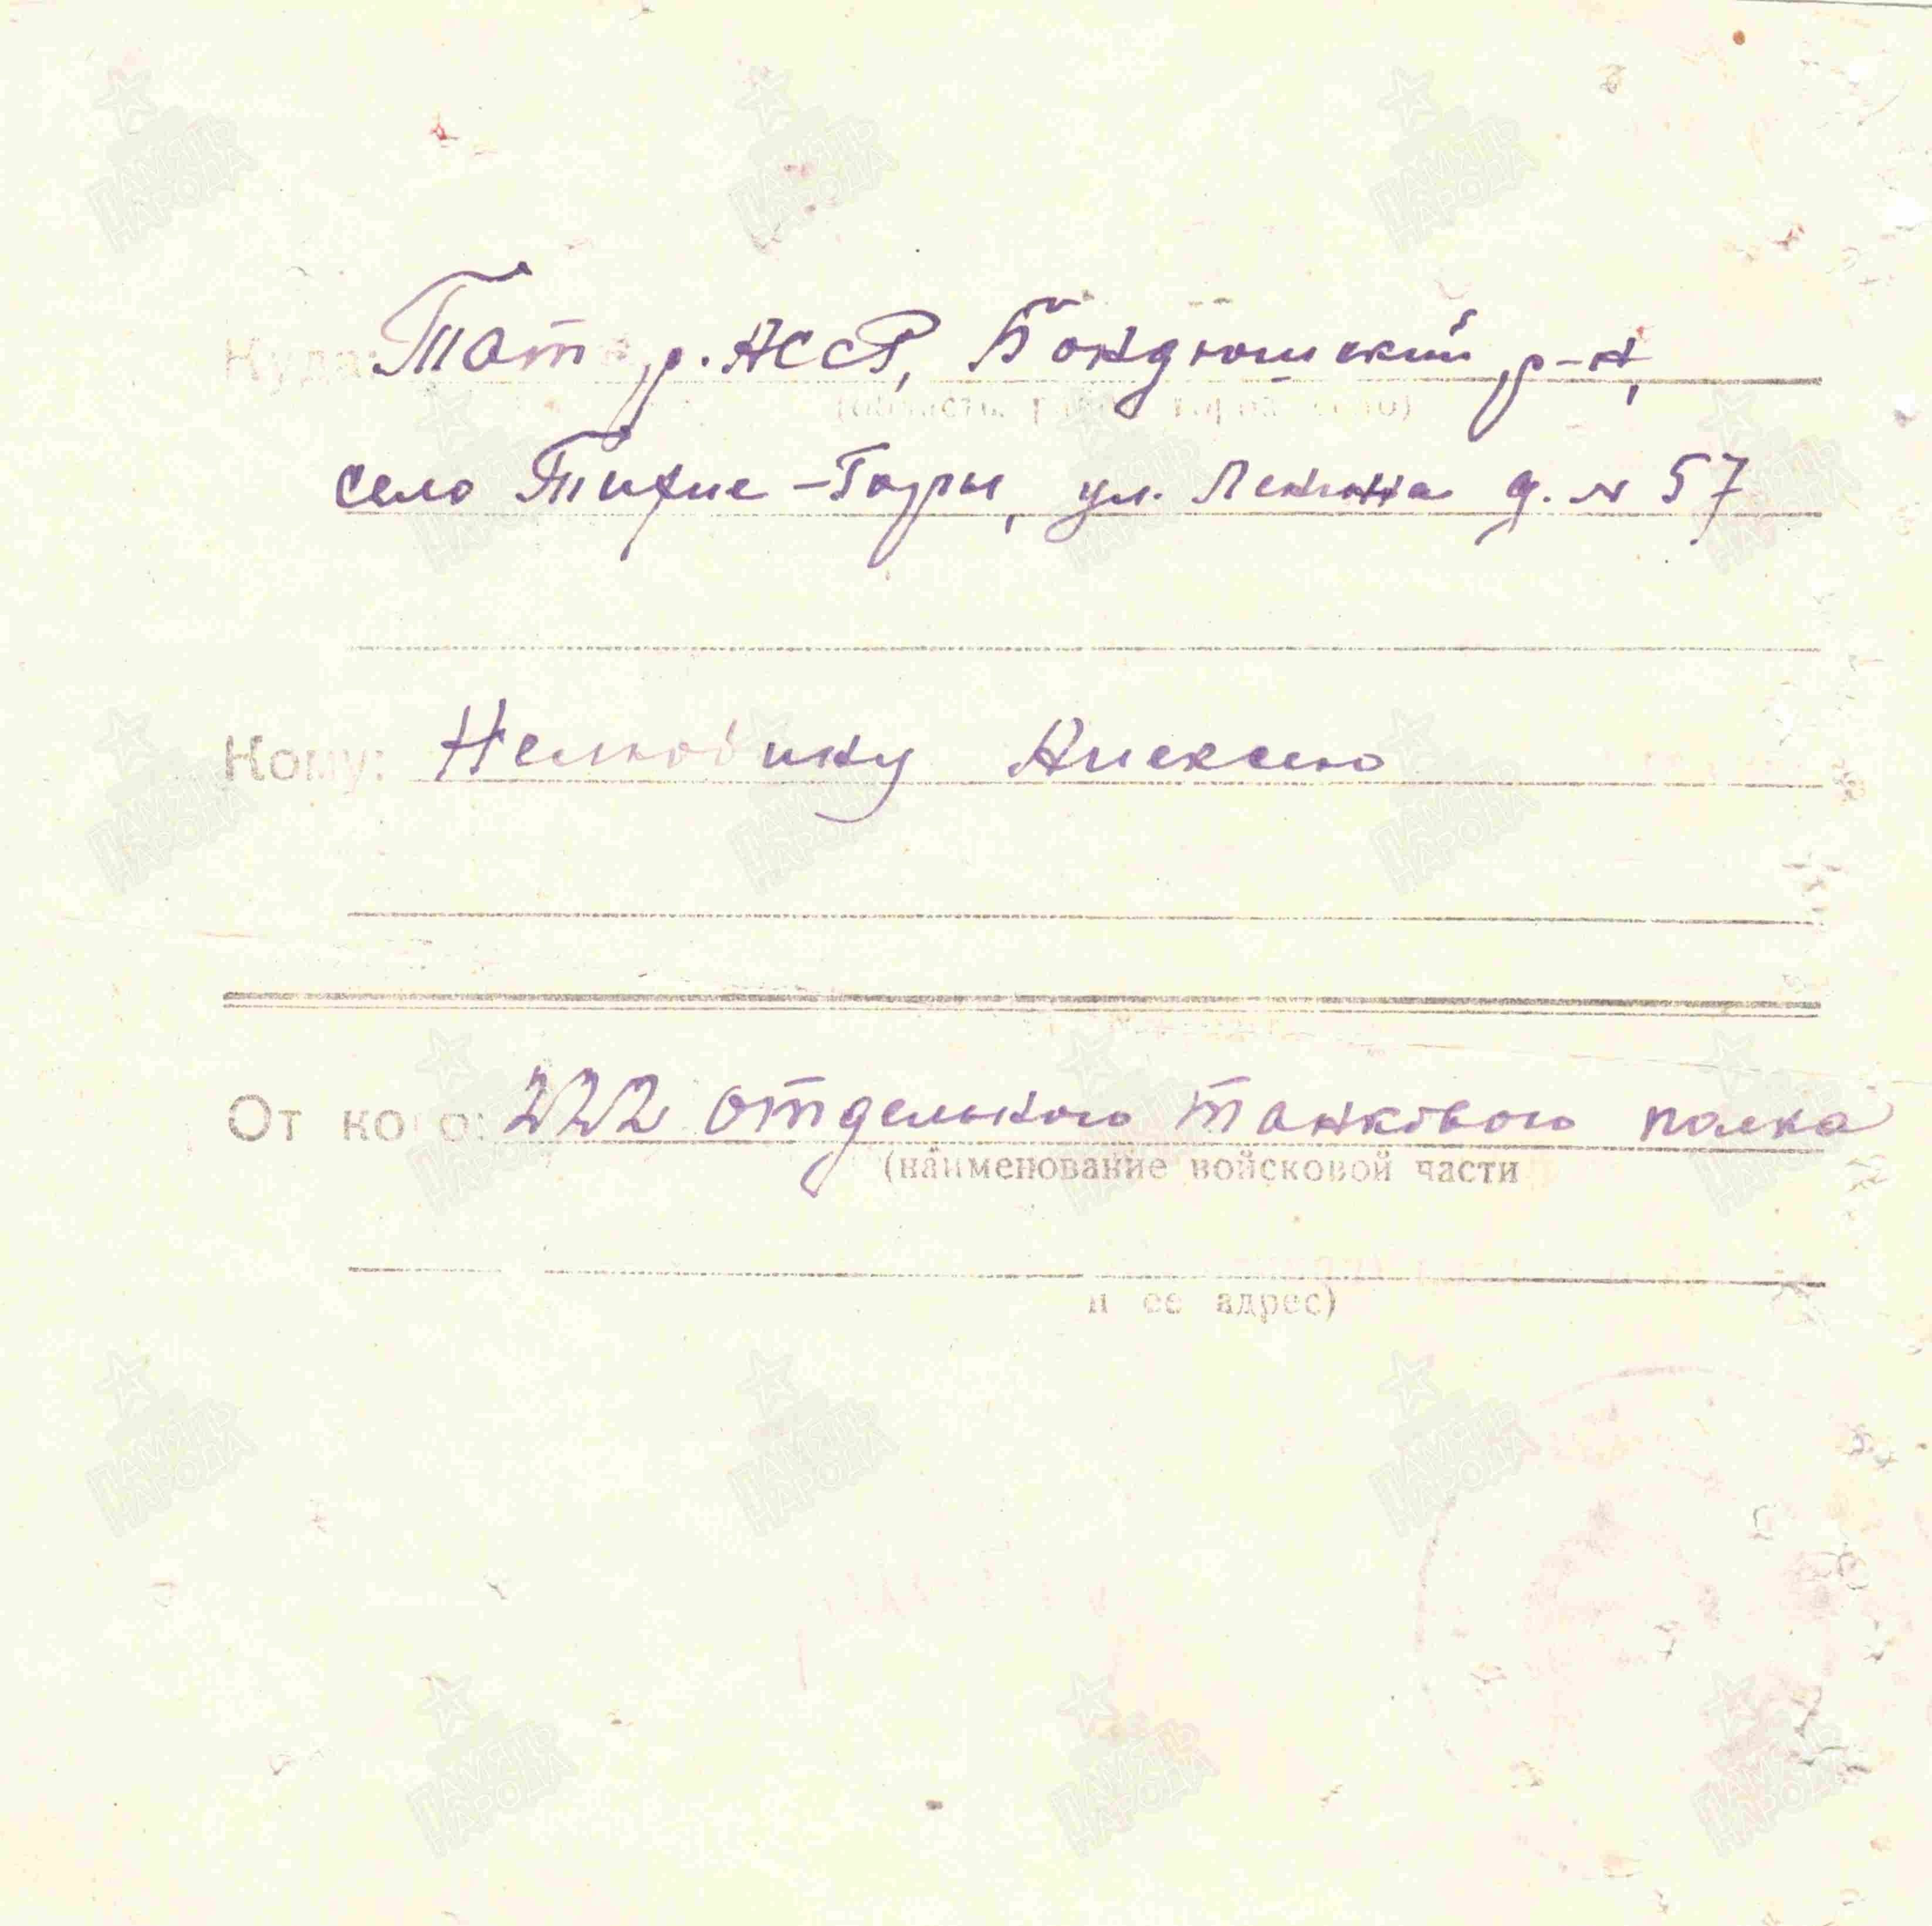 Куда: Татр. АССР, Бондюшский р-н,
(область, район, город, село)
село Тихие-Горы, ул. Ленина д. № 57
Кому: Алексею
От кого: 222 отдельного танкового полка
(наименование войсковой части
и ее адрес)
ПАМЯТЬ НАРОДА